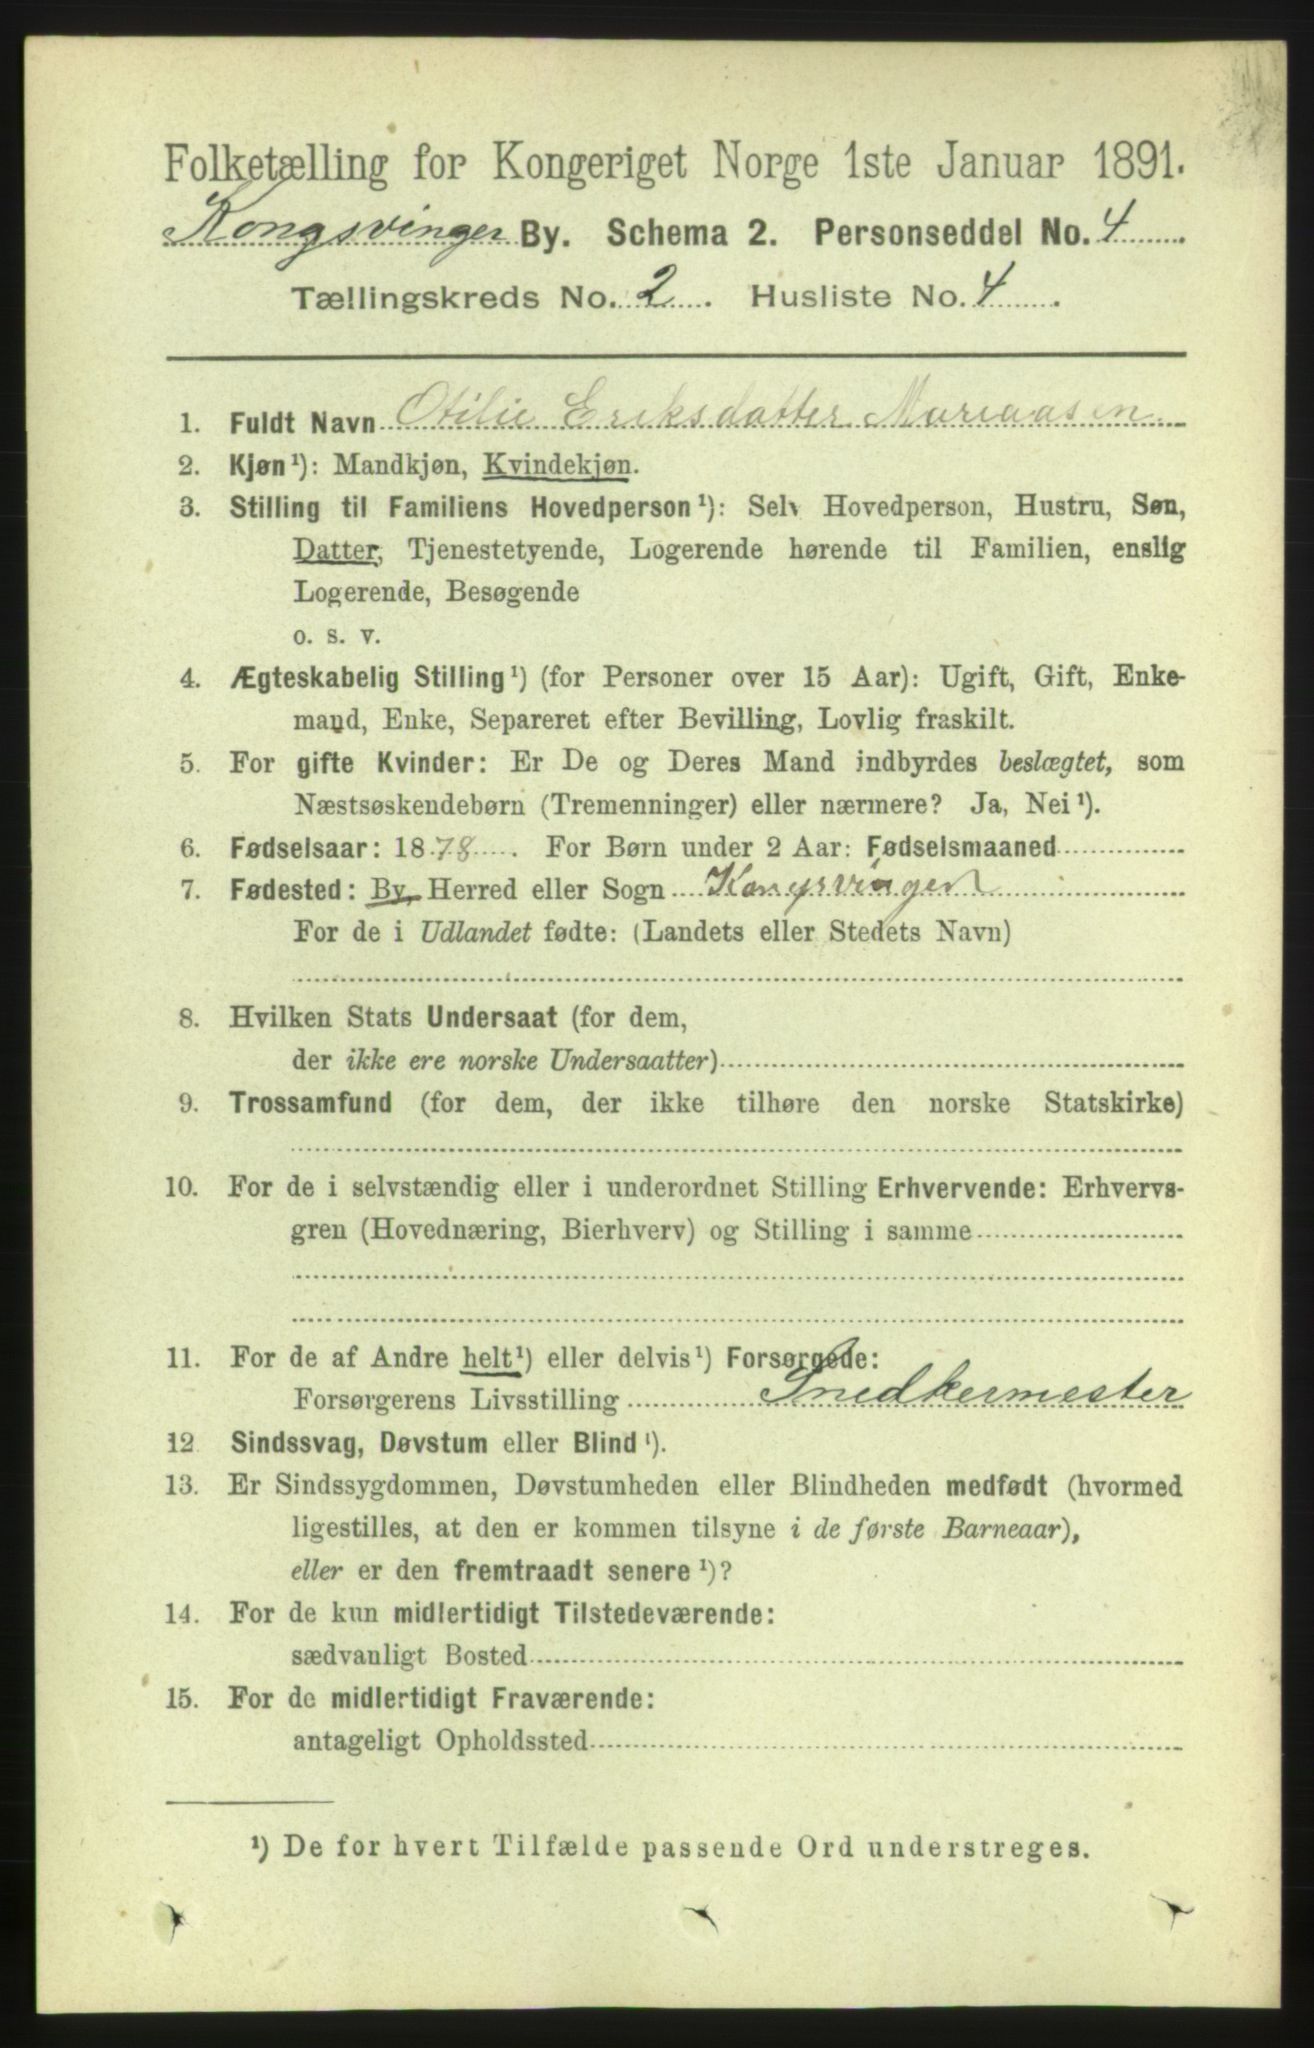 Folketælling for Kongeriget Norge 1ste Januar 1891.
Kongsvinger By. Schema 2. Personseddel No. 4
Tællingskreds No. 2. Husliste No. 4.
1. Fuldt Navn Otilie Eriksdatter Mariaasen
2. Kjøn¹): Mandkjøn, Kvindekjøn.
3. Stilling til Familiens Hovedperson¹): Selv Hovedperson, Hustru, Søn,
Datter, Tjenestetyende, Logerende hørende til Familien, enslig
Logerende, Besøgende
o. s. v.
4. Ægteskabelig Stilling¹) (for Personer over 15 Aar): Ugift, Gift, Enke-
mand, Enke, Separeret efter Bevilling, Lovlig fraskilt.
5. For gifte Kvinder: Er De og Deres Mand indbyrdes beslægtet, som
Næstsøskendebørn (Tremenninger) eller nærmere? Ja, Nei¹).
6. Fødselsaar: 1878. For Børn under 2 Aar: Fødselsmaaned
7. Fødested: By, Herred eller Sogn Kongsvinger
For de i Udlandet fødte: (Landets eller Stedets Navn)
8. Hvilken Stats Undersaat (for dem,
der ikke ere norske Undersaatter)
9. Trossamfund (for dem, der ikke tilhøre den norske Statskirke)
10. For de i selvstændig eller i underordnet Stilling Erhvervende: Erhvervs-
gren (Hovednæring, Bierhverv) og Stilling i samme
11. For de af Andre helt¹) eller delvis¹) Forsørgede:
Forsørgerens Livsstilling Snedkermester
12 Sindssvag, Døvstum eller Blind¹).
13. Er Sindssygdommen, Døvstumheden eller Blindheden medfødt (hvormed
ligestilles, at den er kommen tilsyne i de første Barneaar),
eller er den fremtraadt senere¹)?
14. For de kun midlertidigt Tilstedeværende:
sædvanligt Bosted
15. For de midlertidigt Fraværende:
antageligt Opholdssted
¹) De for hvert Tilfælde passende Ord understreges.